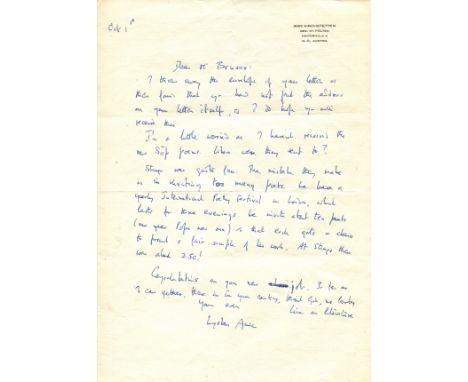 3062 KIRCHSTETTEN
BEZ. ST. PÖLTEN
HINTERHOLZ 6
N.-Ö. AUSTRIA
Oct 1st
Dear Mr
I threw away the envelope of your letter
then found that you have not put the address
on your letter itself, so I do hope you will
receive this
I'm a little worried as I haven't received the
new poems. Where were they sent to?
Struga was quite fun. The mistake they make
is in inviting too many poets. We have a
yearly International Poetry Festival in London, which
lasts for three evenings. We invite about ten poets
(one year Popa was one) so that each gets a chance
to present a fair sample of his work. At Struga there
were about 250!
Congratulations on your new job. So far as
I can gather, there is in your country, thank God, no
line on literature
Yours ever
Wystan Auden